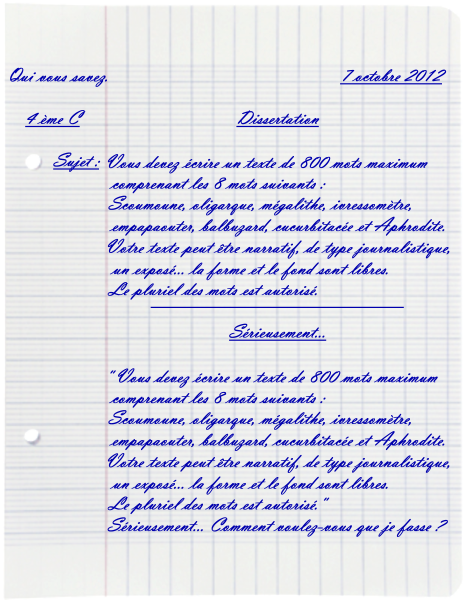 Qui vous savez.
7 octobre 2012
4 ème C
Dissertation
Sujet : Vous devez écrire un texte de 800 mots maximum
comprenant les 8 mots suivants :
Scoumoune, oligarque, mégalithe, ivressomètre,
empapaouter, balbuzard, cucurbitacée et Aphrodite.
Votre texte peut être narratif, de type journalistique,
un exposé... la forme et le fond sont libres.
Le pluriel des mots est autorisé.
Sérieusement...
"Vous devez écrire un texte de 800 mots maximum
comprenant les 8 mots suivants :
Scoumoune, oligarque, mégalithe, ivressomètre,
empapaouter, balbuzard, cucurbitacée et Aphrodite.
Votre texte peut être narratif, de type journalistique,
un exposé... la forme et le fond sont libres.
Le pluriel des mots est autorisé."
Sérieusement... Comment voulez-vous que je fasse ?